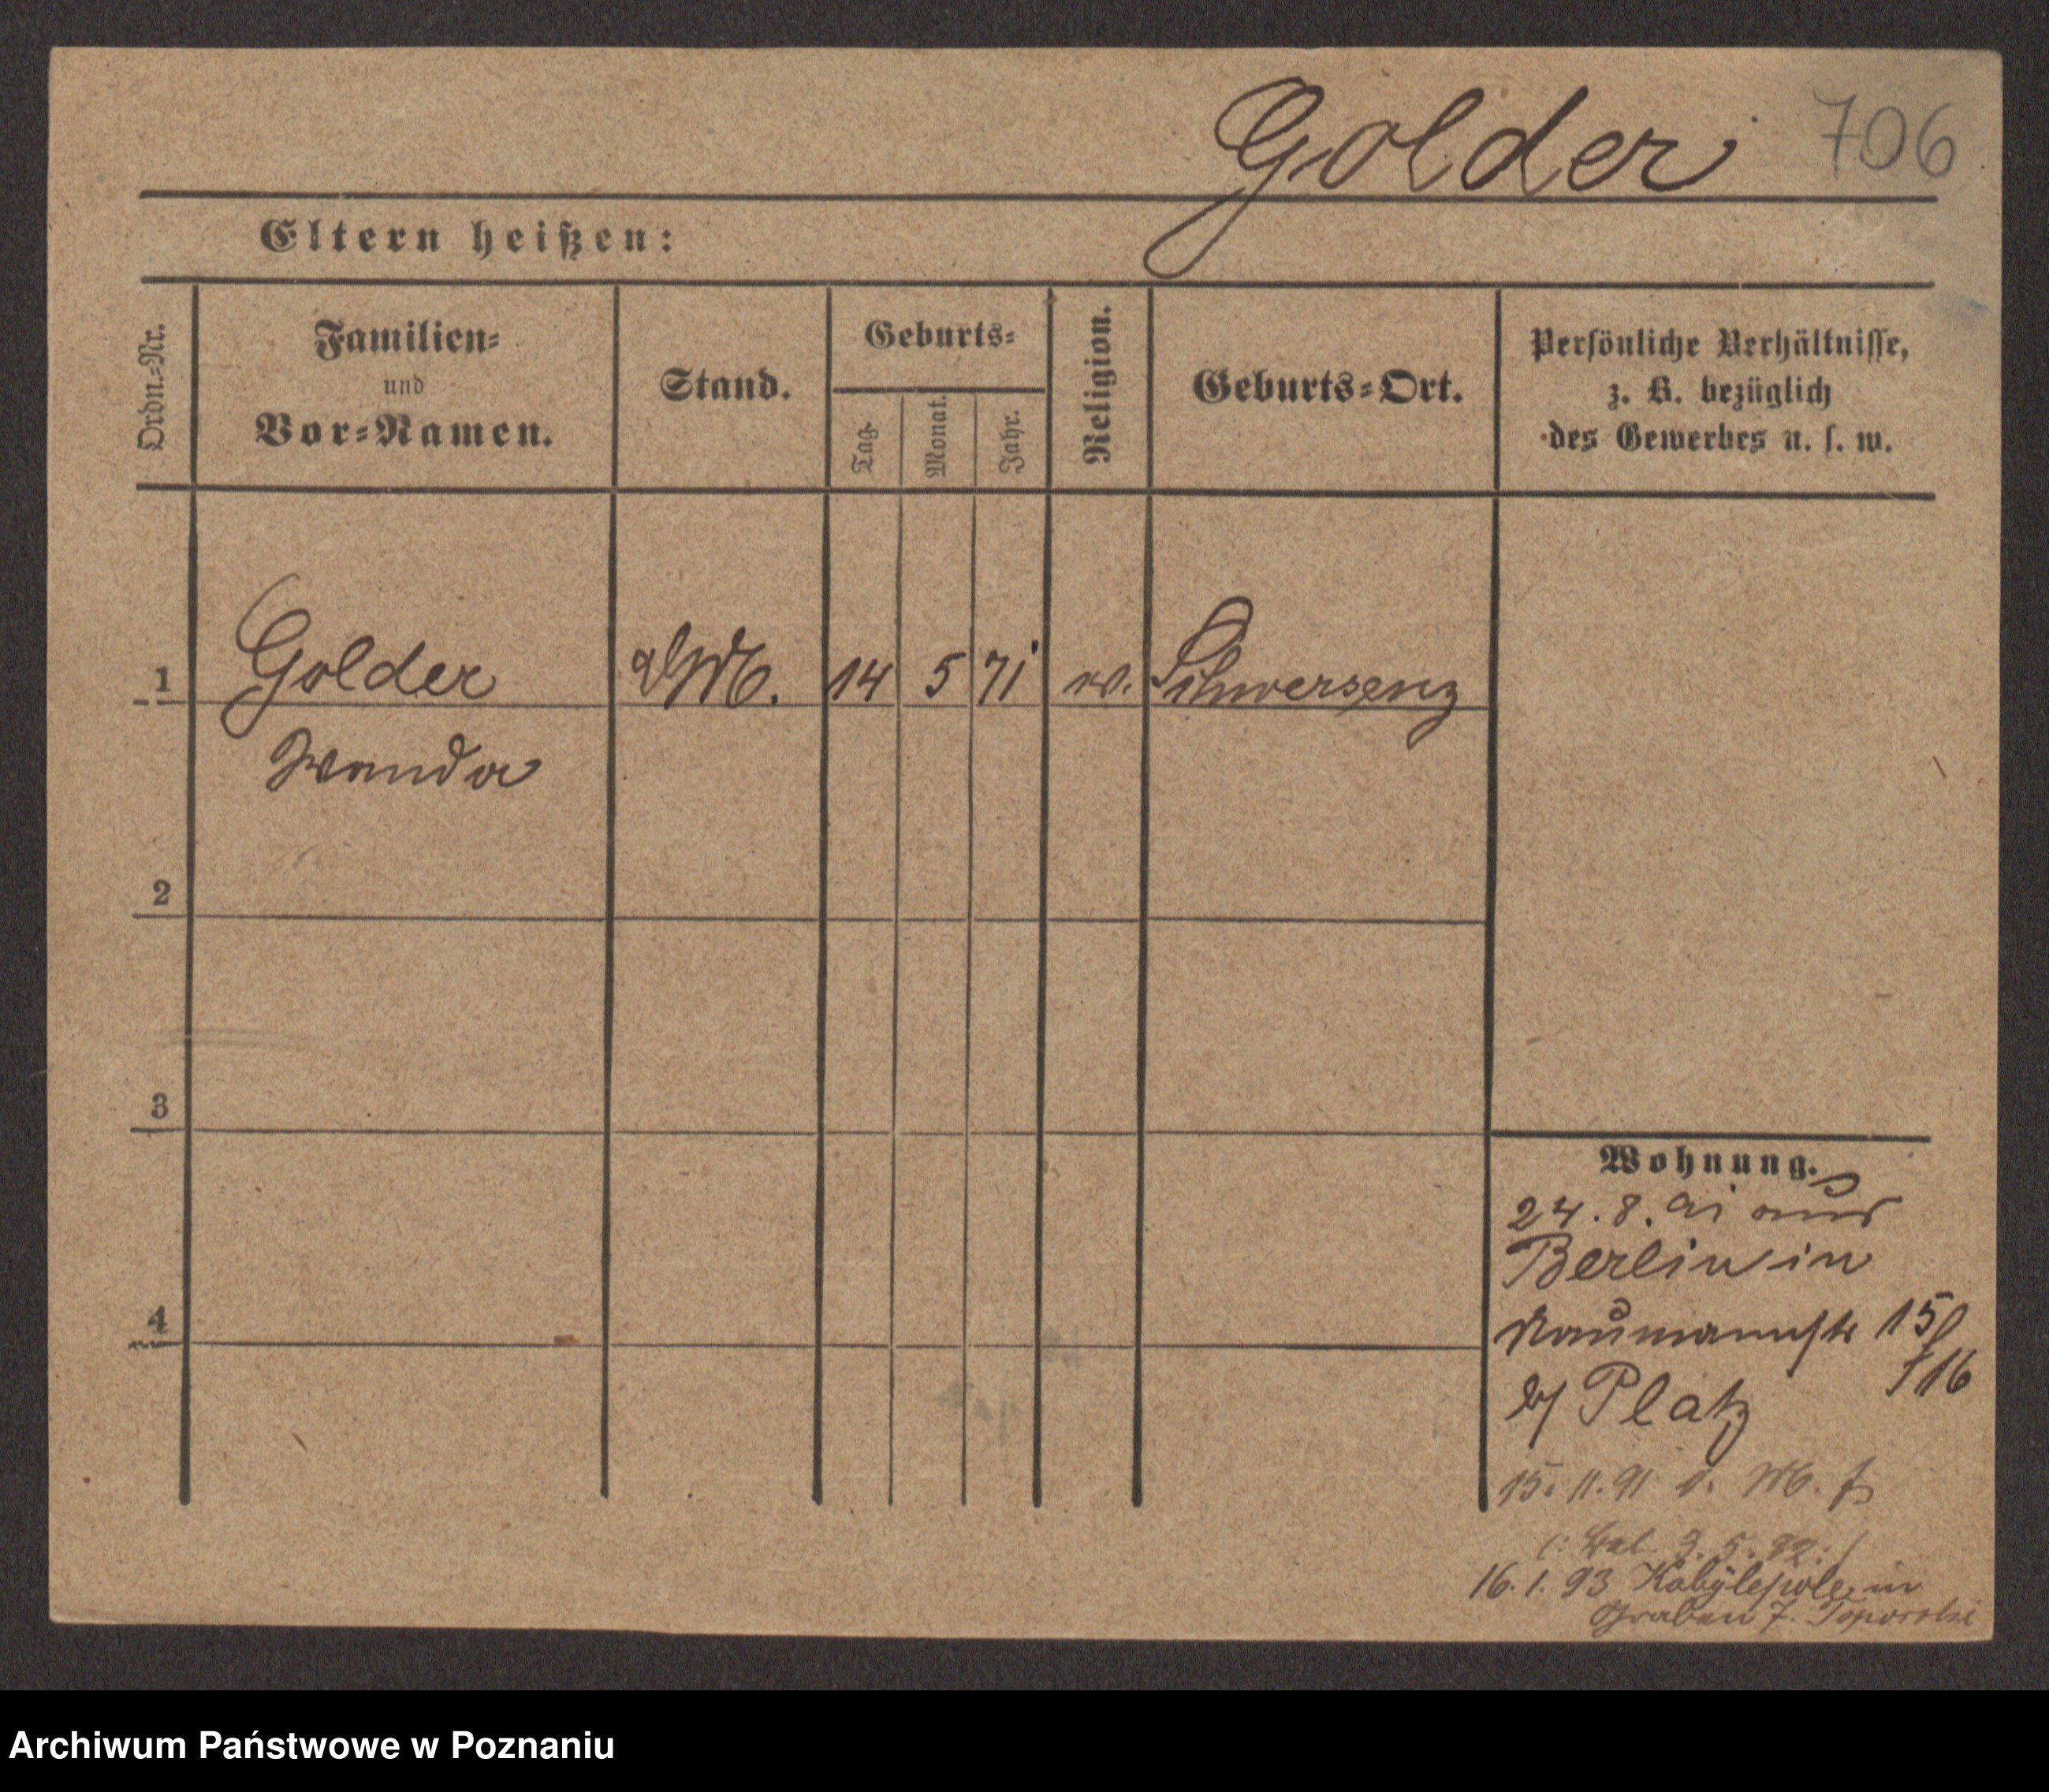 Golder 706
Eltern heißen:
Ordn.-Nr.
Familien-
und
Vor-Namen.
Stand.
Geburts-
Tag.
Monat.
Jahr.
Religion.
Geburts-Ort.
Persönliche Verhältnisse,
z. B. bezüglich
des Gewerbes u. s. w.
1 Golder 14 5 71 Schwersenz
Wanda
2
3
4
Wohnung.
24. 8. 91 aus
Berlin in
Naumannstr 15/
/16
b/ Platz
15. 11. 91
3. 5. 92
16. 1. 93 Kobylepole in
Graben 7. Toporski
Archiwum Państwowe w Poznaniu